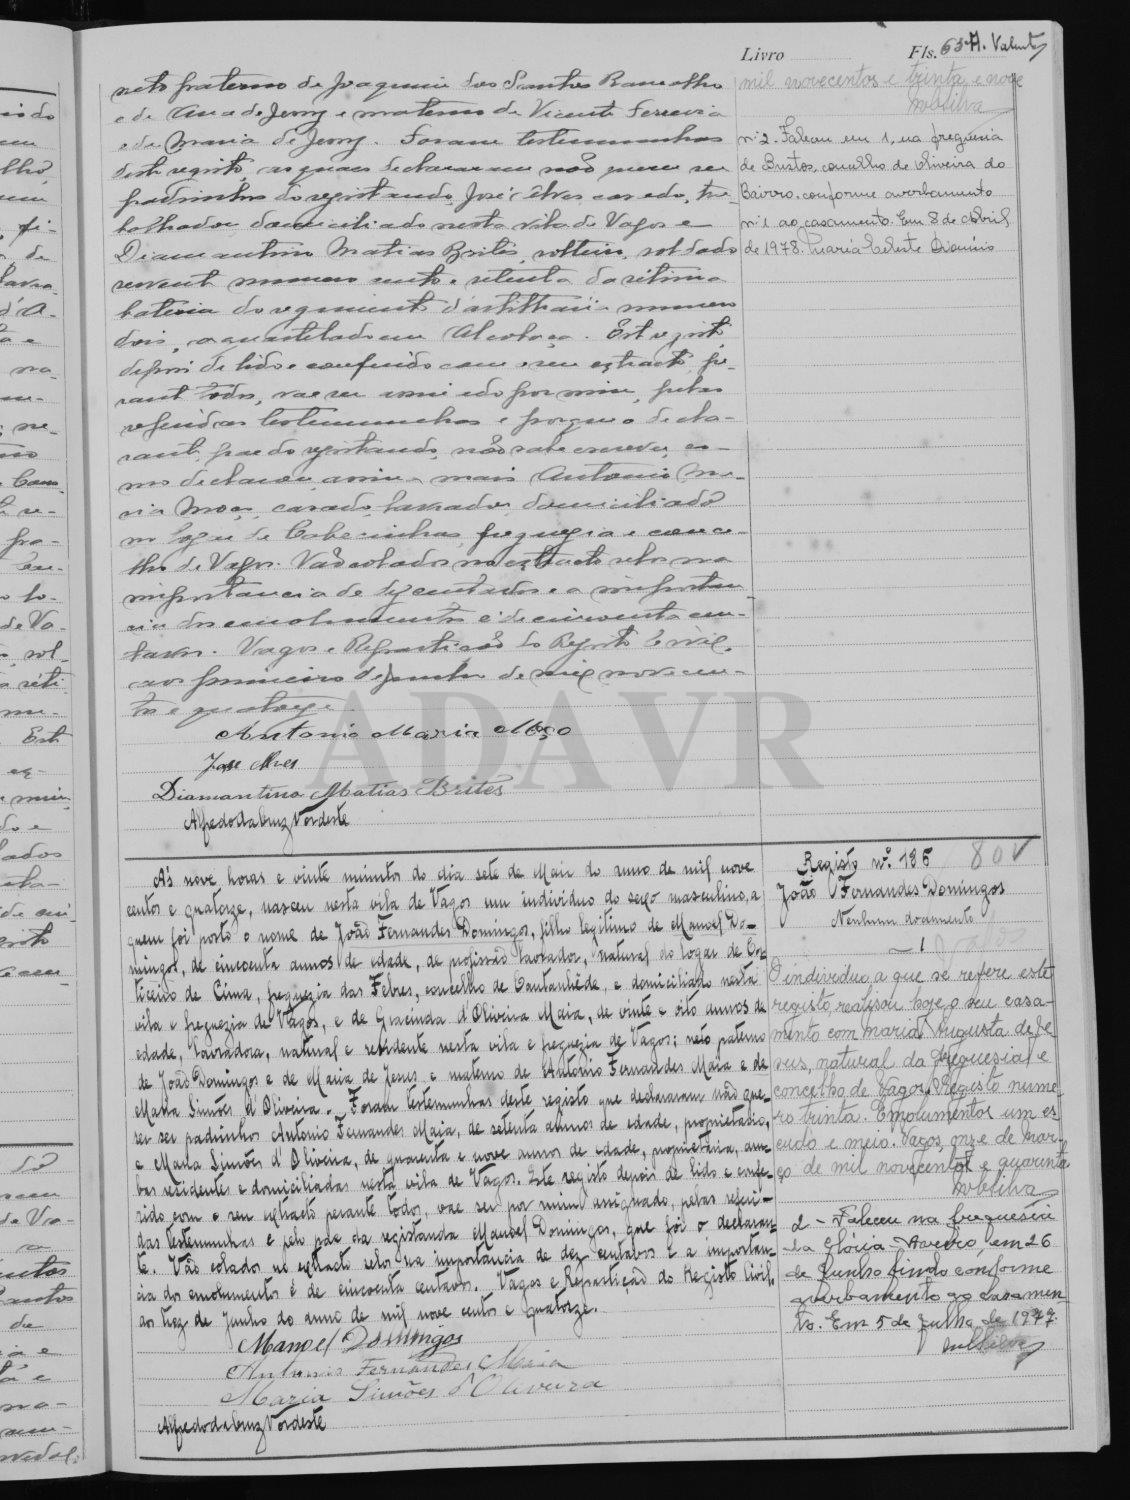 Livro Fls. 63 A. Valente
neto paterno de Joaquim dos Santos Ramalho
e de Ana de Jesus e materno de Vicente Ferreira
e de Maria de Jesus. Foram testemunhas
deste registo, as quaes declararam não querer ser
padrinhos do registando, José Alves, casado, tra-
balhador, domiciliado nesta vila de Vagos e
Diamantino Matias Brites, solteiro, soldado
servente numero cento e setenta da sétima
bateria do regimento d'artilharia numero
dois, aquartelado em Alcobaça. Este registo,
depois de lido e conferido com o seu extracto pe-
rante todos, vae ser assinado por mim, pelas
referidas testemunhas e porque o decla-
rante, pae do registando, não sabe escrever, co-
mo declarou, assina mais Antonio Ma-
ria Moço, casado, lavrador, domiciliado
no logar de Cabecinhas, freguezia e conce-
lho de Vagos. Vão colados no extracto selos na
importancia de dez centavos e a importan-
cia dos emolumentos é de cincoenta cen-
tavos. Vagos e Repartição do Registo Civil,
aos primeiro de Junho de mil novecen-
tos e quatorze.
Antonio Maria Moço
José Alves
Diamantino Matias Brites
Alfredo da Cruz Nordeste
mil novecentos e trinta e nove
nº 2. Faleceu em 1, na freguesia
de Bustos, concelho de Oliveira do
Bairro, conforme averbamento
nº 1 ao casamento. Em 8 de Abril
de 1978. Maria Celeste Dionísio
ADAVR
A's nove horas e vinte minutos do dia sete de Maio do anno de mil nove
centos e quatorze, nasceu nesta vila de Vagos um individuo do sexo masculino, a
quem foi posto o nome de João Fernandes Domingos, filho legitimo de Manoel Do-
mingos, de cincoenta annos de edade, de profissão lavrador, natural do logar de Cor-
ticeiro de Cima, freguezia das Febres, concelho de Cantanhêde, e domiciliado nesta
vila e freguezia de Vagos, e de Gracinda d'Oliveira Maia, de vinte e oito annos de
edade, lavradora, natural e residente nesta vila e freguezia de Vagos; neto paterno
de João Domingos e de Maria de Jesus e materno de Antonio Fernandes Maia e de
Maria Simões d'Oliveira. Foram testemunhas deste registo que declararam não que-
rer ser padrinhos Antonio Fernandes Maia, de setenta annos de edade, proprietario,
e Maria Simões d'Oliveira, de quarenta e nove annos de edade, proprietária, am-
bas residentes e domiciliadas nesta vila de Vagos. Este registo depois de lido e confe-
rido com o seu extracto perante todos, vae ser por mim assignado, pelas referi-
das testemunhas e pelo pae da registanda Manoel Domingos, que foi o declaran-
te. Vão colados no extracto selos na importancia de dez centavos e a importan-
cia dos emolumentos é de cincoenta centavos. Vagos e Repartição do Registo Civil,
aos trez de Junho do anno de mil nove centos e quatorze.
Manoel Domingos
Antonio Fernandes Maia
Maria Simões d'Oliveira
Alfredo da Cruz Nordeste
Registo nº. 186 80 V
João Fernandes Domingos
Nenhum documento
1
O individuo a que se refere este
registo, realisou hoje o seu casa-
mento com Maria Augusta de Je-
sus, natural da freguesia e
concelho de Vagos. Registo nume-
ro trinta. Emolumentos um es-
cudo e meio. Vagos, onze de Mar-
ço de mil novecentos e quarenta
2 - Faleceu na freguesia
da Glória - Aveiro, em 26
de Junho findo conforme
averbamento ao casamen-
to. Em 5 de Julho de 1977.